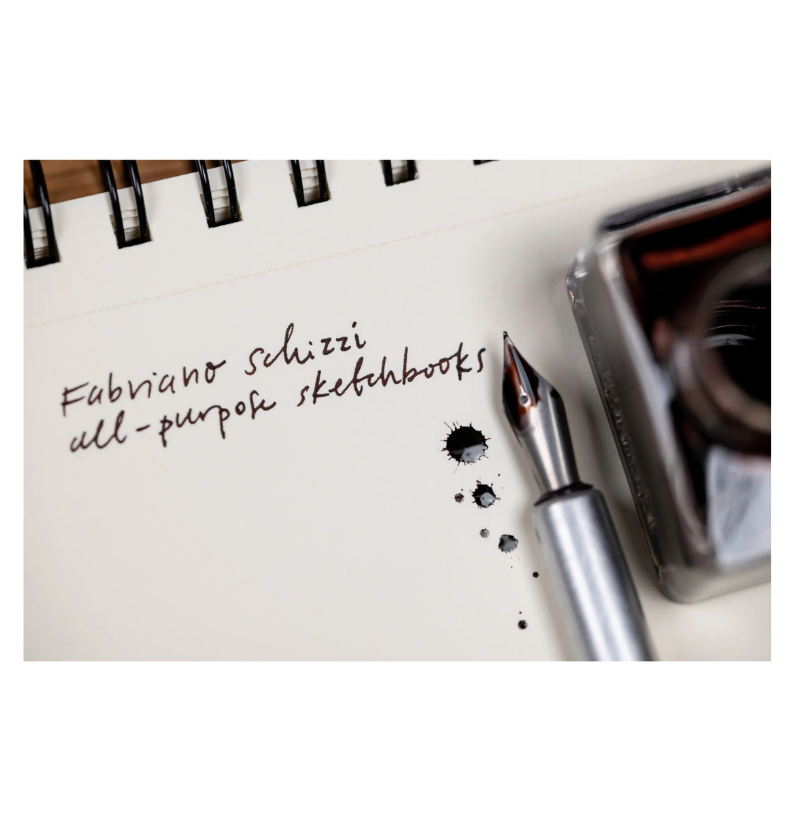 Fabriano schizzi
all-purpose sketchbooks